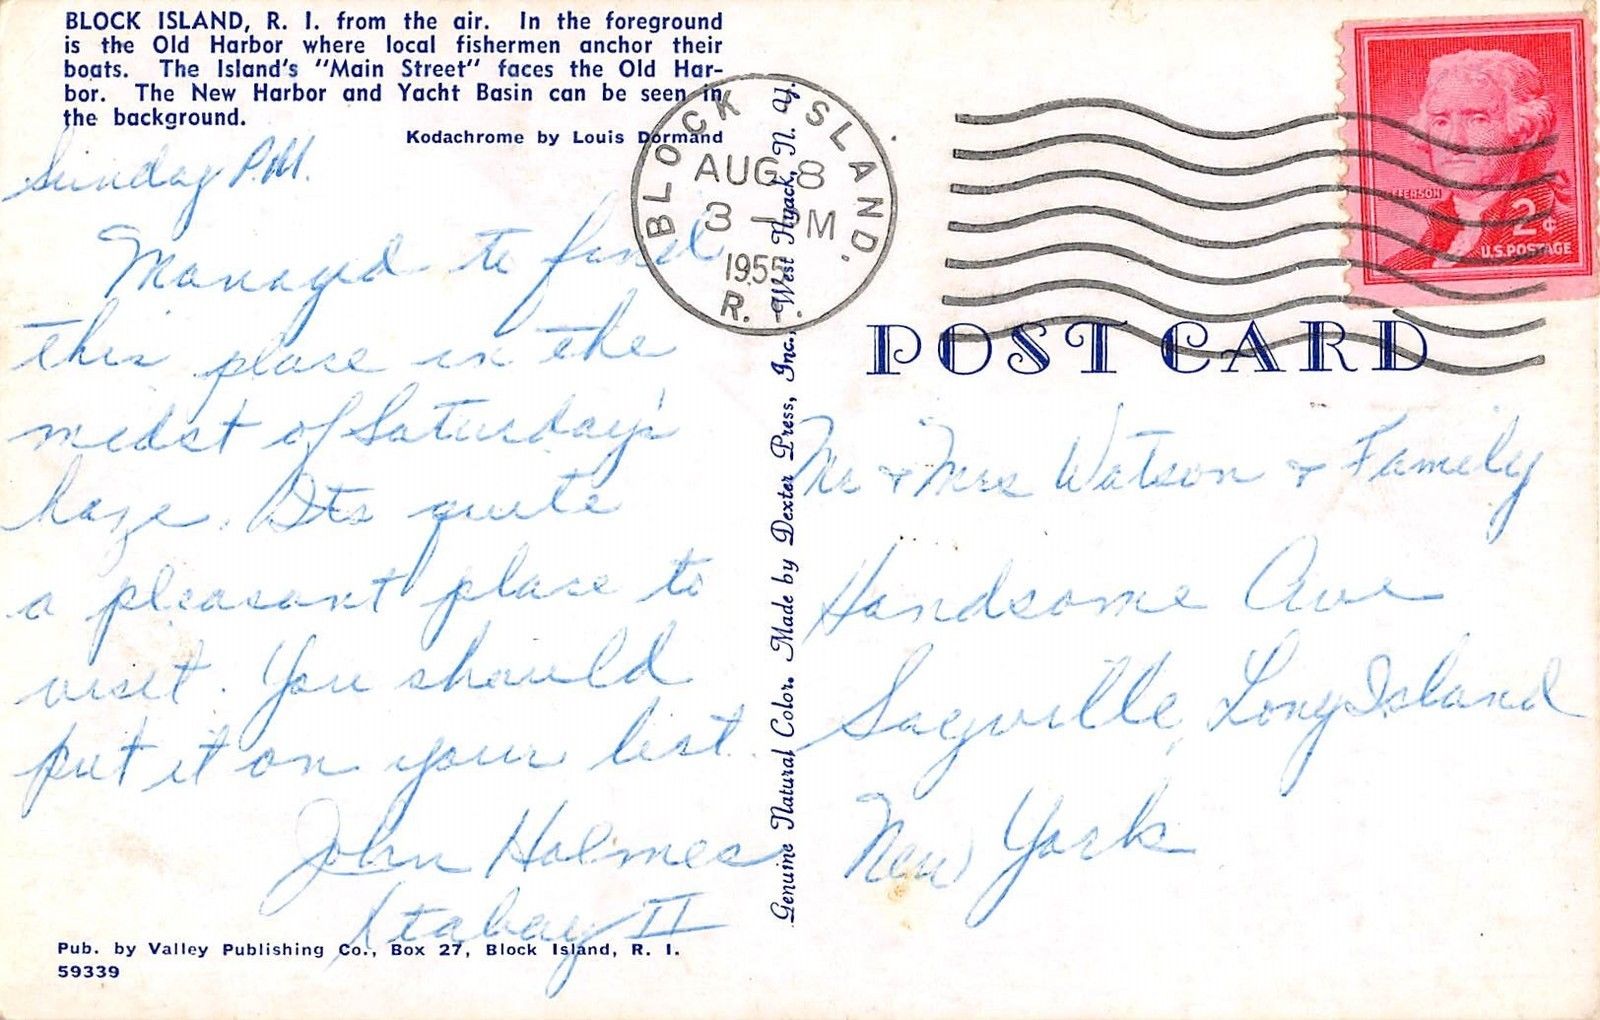 BLOCK ISLAND, R. I. from the air. In the foreground
is the Old Harbor where local fishermen anchor their
boats. The Island's "Main Street" faces the Old Har-
bor. The New Harbor and Yacht Basin can be seen in
the background.
Kodachrome by Louis Dormand
Sunday P.M.
Managed to find
this place in the
midst of Saturday's
haze. Its quite
a pleasant place to
visit. You should
put it on your list.
John Holmes
Itabay II
Pub. by Valley Publishing Co., Box 27, Block Island, R. I.
59339
Genuine Natural Color. Made by Dexter Press, Inc., West Nyack, N. Y.
BLOCK ISLAND,
AUG 8
3 - PM
1955
R. I.
JEFFERSON
2¢
U.S. POSTAGE
POST CARD
Mr & Mrs Watson & Family
Handsome Ave
Sayville, Long Island
New York